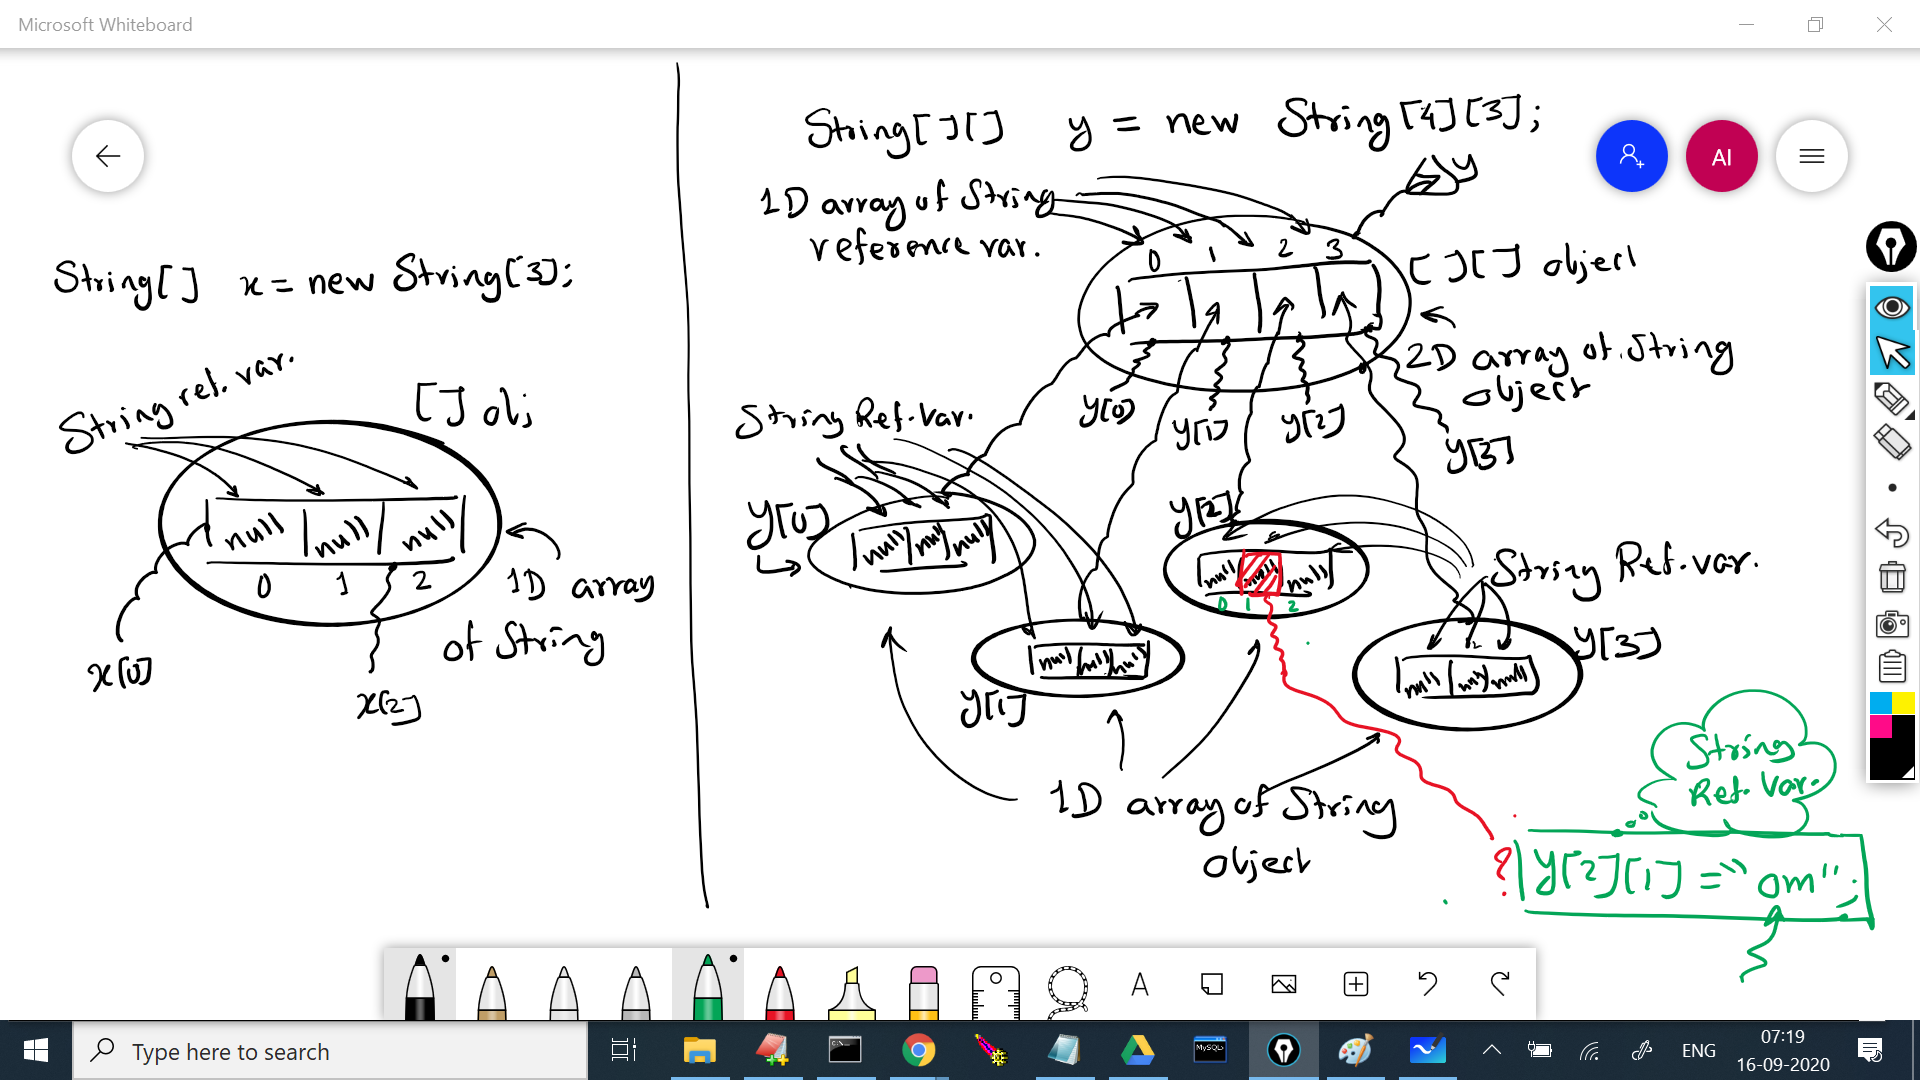 Microsoft Whiteboard
String[] x = new String[3];
String ref. var.
[] obj
null null null
0 1 2
1D array
of String
x[0]
x[2]
String[][] y = new String[4][3];
y
1D array of String
reference var.
0 1 2 3
[][] object
2D array of String
object
y[0]
y[1]
y[2]
y[3]
String Ref. Var.
y[0]
null null null
y[2]
null null null
0 1 2
String Ref. var.
null null null
y[1]
null null null
y[3]
1D array of String
object
String
Ref. Var.
? y[2][1] = "om";
AI
Type here to search
C:\
MySQL
ENG
07:19
16-09-2020